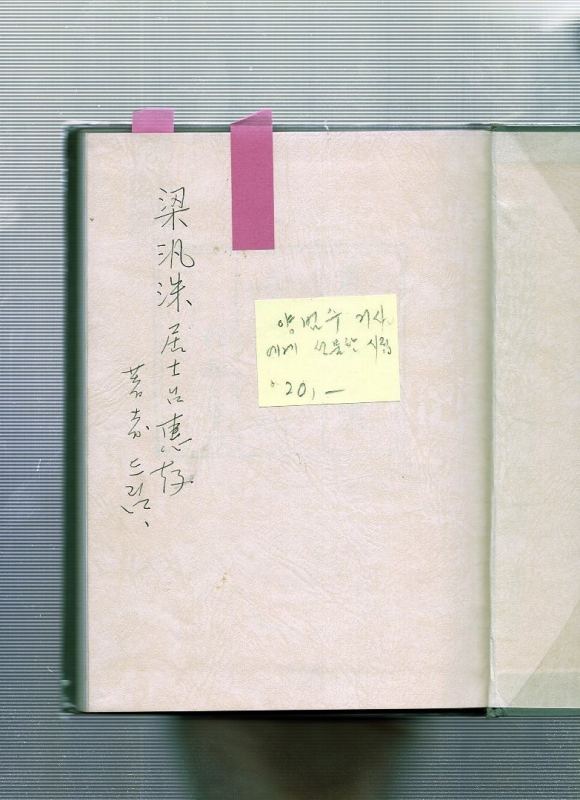 梁汎洙居士님惠存
드림.
양범수 거사
에게 선물한 시집
20,—